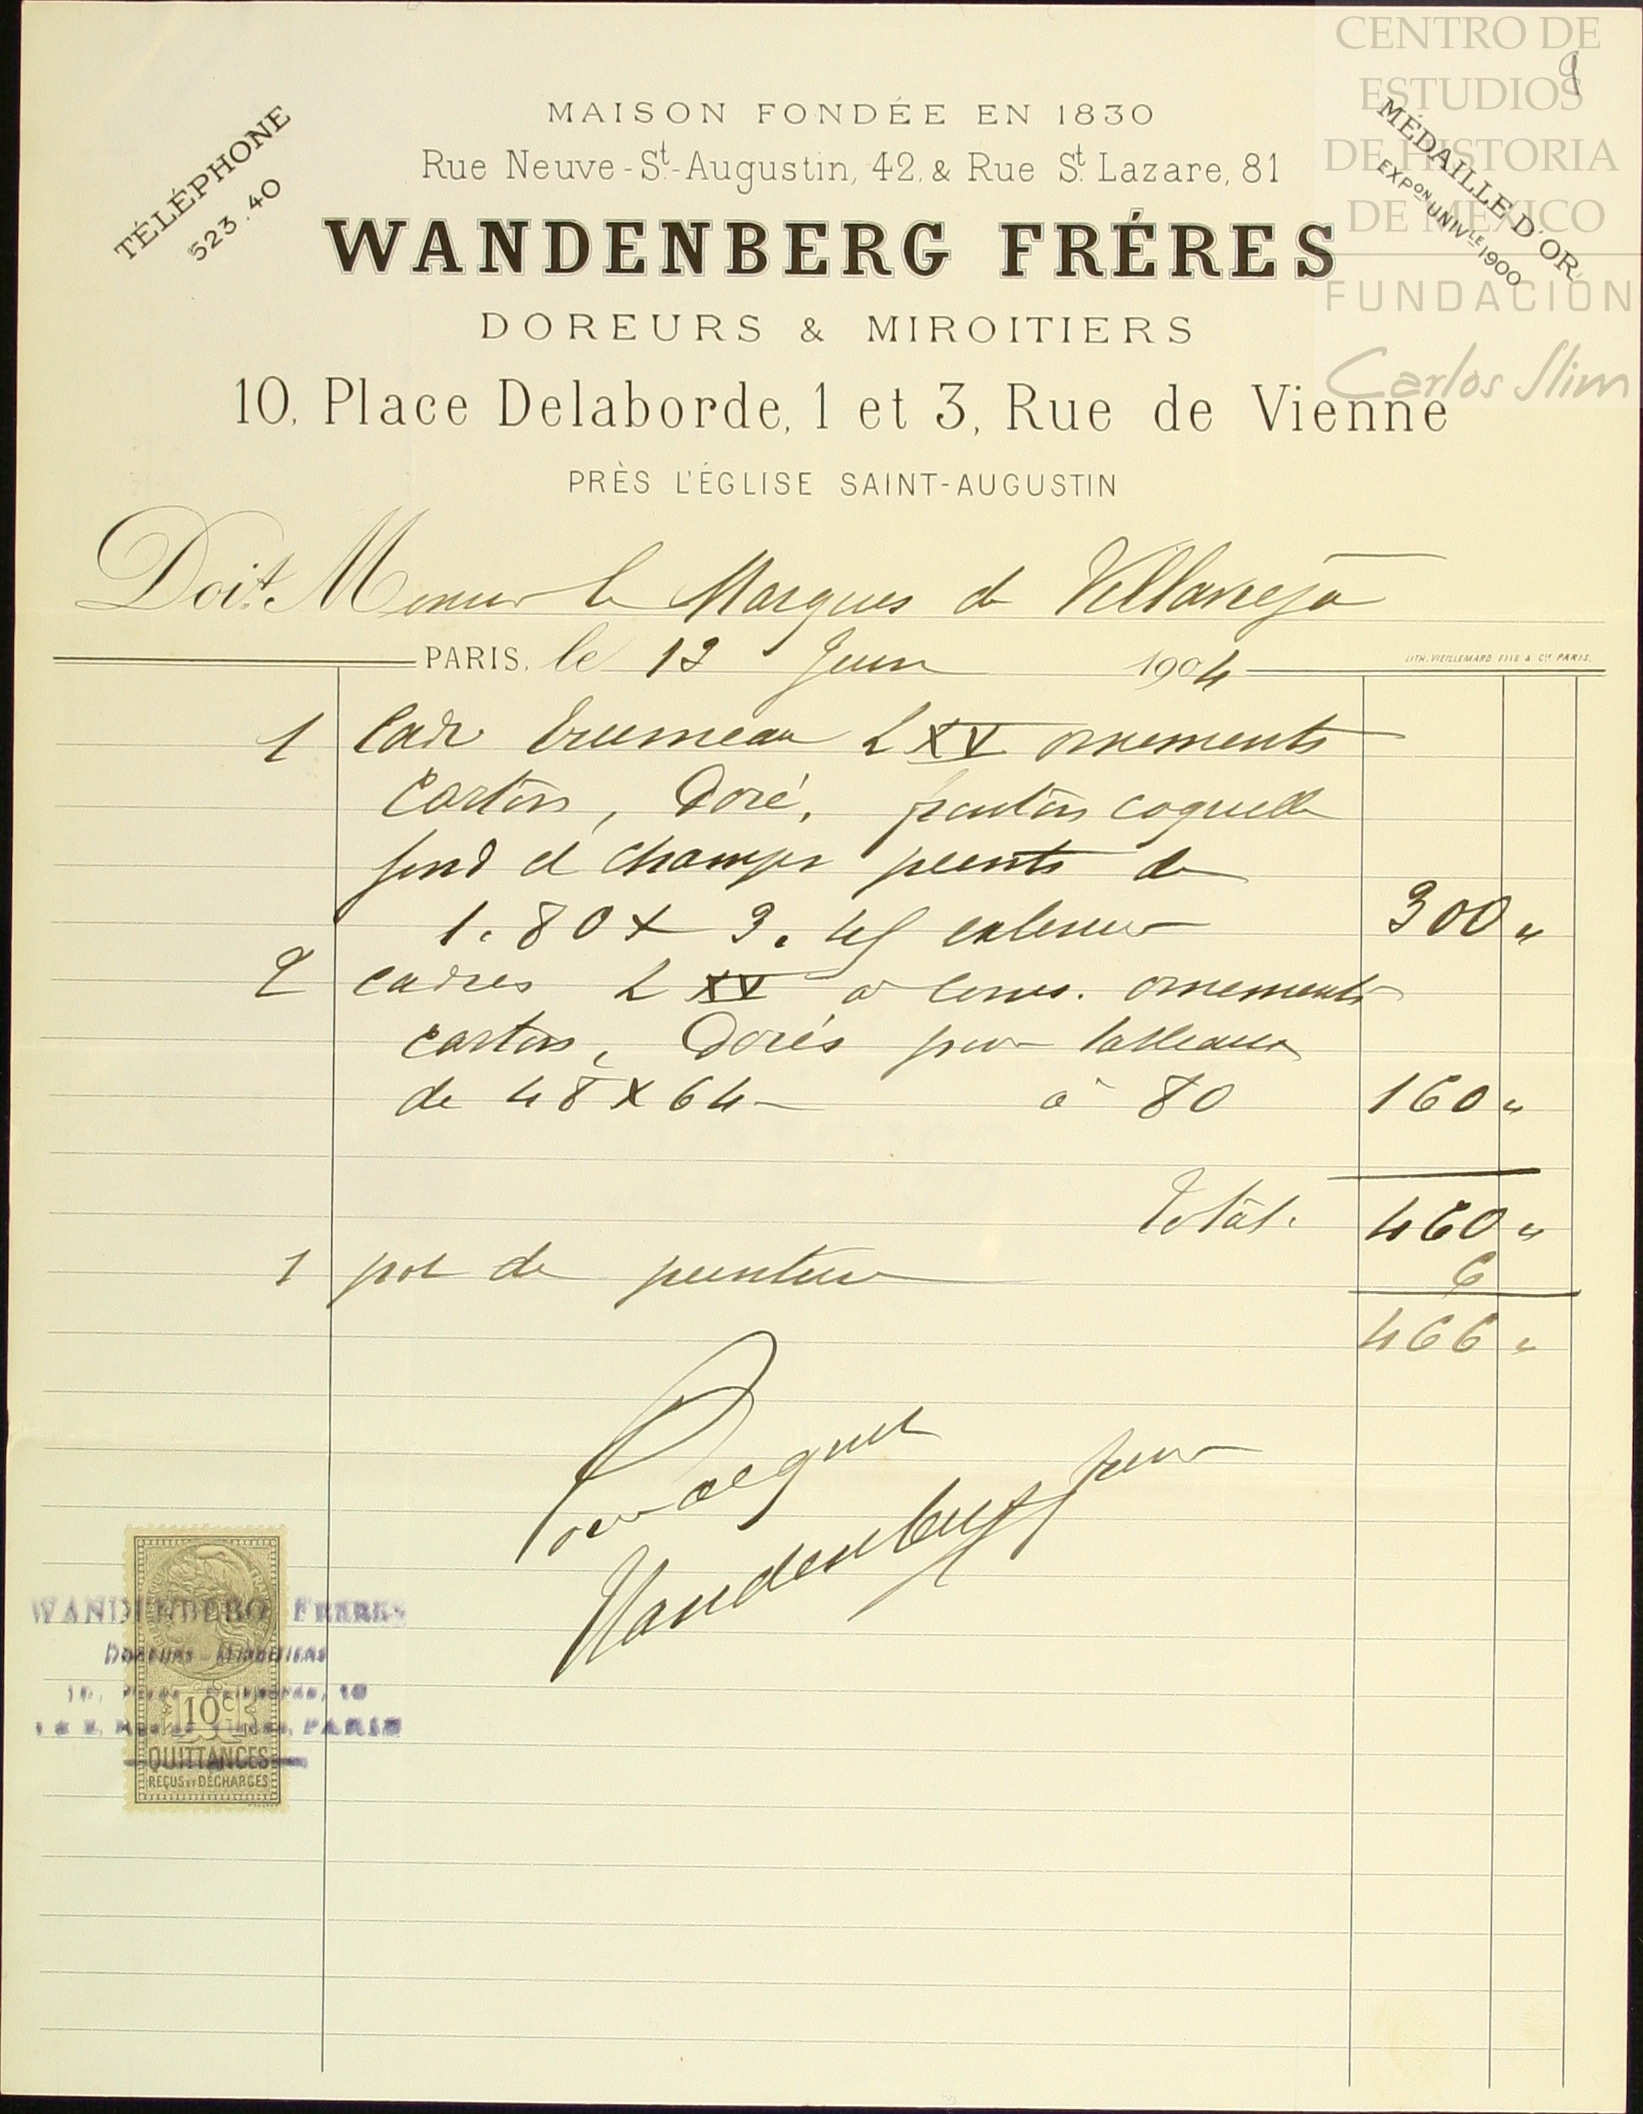 CENTRO DE
ESTUDIOS
DE HISTORIA
DE MÉXICO
FUNDACIÓN
Carlos Slim
9
TÉLÉPHONE
523.40
MÉDAILLE D'OR
EXPON UNIVLE 1900
MAISON FONDÉE EN 1830
Rue Neuve-St-Augustin, 42, & Rue St Lazare, 81
WANDENBERG FRÉRES
DOREURS & MIROITIERS
10, Place Delaborde, 1 et 3, Rue de Vienne
PRÈS L'ÉGLISE SAINT-AUGUSTIN
Doit Monsieur le Marques de
PARIS, le Juin 1904
LITH. VIEILLEMARD FILS & Cie PARIS.
1 Cadre trumeau L XV ornements
carton, Doré, coquille
fond et champs peints de
1.80 x exterieur 300 "
2 cadres L XV a ornements
carton, Dorés pour tableaux
de 48 x 64 à 80 160 "
Total. 460 "
1 pot de peinture 6
466 "
Pour acquit
Wandenberg freres
WANDENBERG FRERES
DOREURS-MIROITIERS
10, PLACE DELABORDE, 10
PARIS
10c
QUITTANCES
REÇUS ET DÉCHARGES